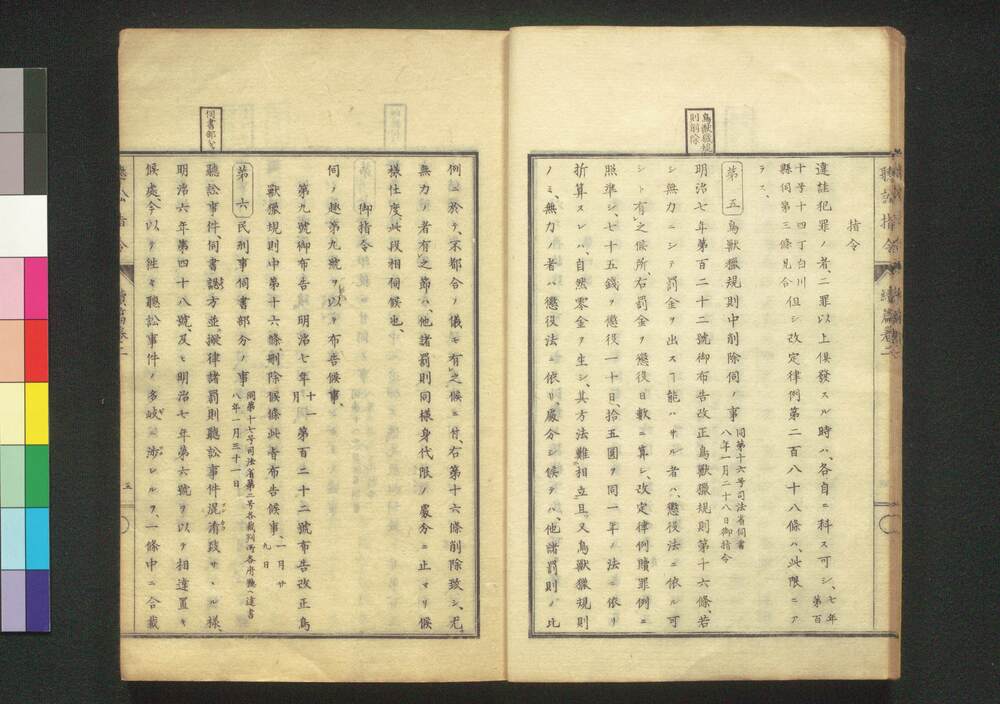 聽訟指令
指令
違註犯罪ノ者、二罪以上俱發スル時ハ、各自ニ科ス可シ、七年第百
十号十四丁白川縣伺第三條見合
但シ改定律例第二百八十八條ハ、此限ニア
ラス、
鳥獸獵規則削除
第五 鳥獸獵規則中削除伺ノ事 同第十六号司法省伺書 八年一月二十八日御指令
明治七年第百二十二號御布告改正鳥獸獵規則第十六條、若
シ無力ニシテ罰金ヲ出スヿ能ハサル者ハ、懲役法ニ依ル可
シト有之候所、右罰金ヲ懲役日數ニ算シ、改定律例贖罪例ニ
照準シ、七十五錢ヲ懲役一十日、拾五圓ヲ同一年ノ法ニ依リ
折算スレハ、自然零金ヲ生シ、其方法難相立、且又鳥獸獵規則
ノミ、無力ノ者ハ懲役法ニ依リ、處分シ候テハ、他諸罰則ノ比
例ニ於テ、不都合ノ儀モ有之候ニ付、右第十六條削除致シ、尤
無力ノ者有之節ハ、他諸罰則同樣身代限ノ處分ニ止マリ候
樣仕度、此段相伺候也、
御指令
伺ノ趣第九號ヲ以テ布告候事、
第九號御布告 緘明治七年十一月 第百二十二號布告改正鳥
獸獵規則中第十六條、刪除候條此旨布告候事、一月廿九日
伺書部分
第六 民刑事伺書部分ノ事 同第十七号司法省第二号各裁判所各府縣ヘ達書 八年一月三十一日
聽訟事件、伺書認方並擬律諸罰則聽訟事件混淆致サヽル樣、
明治六年第四十八號、及ヒ明治七年第六號ヲ以テ相達置キ
候處、今以テ往々聽訟事件ノ多岐ニ涉レルヲ、一條中ニ合載
聽訟指令